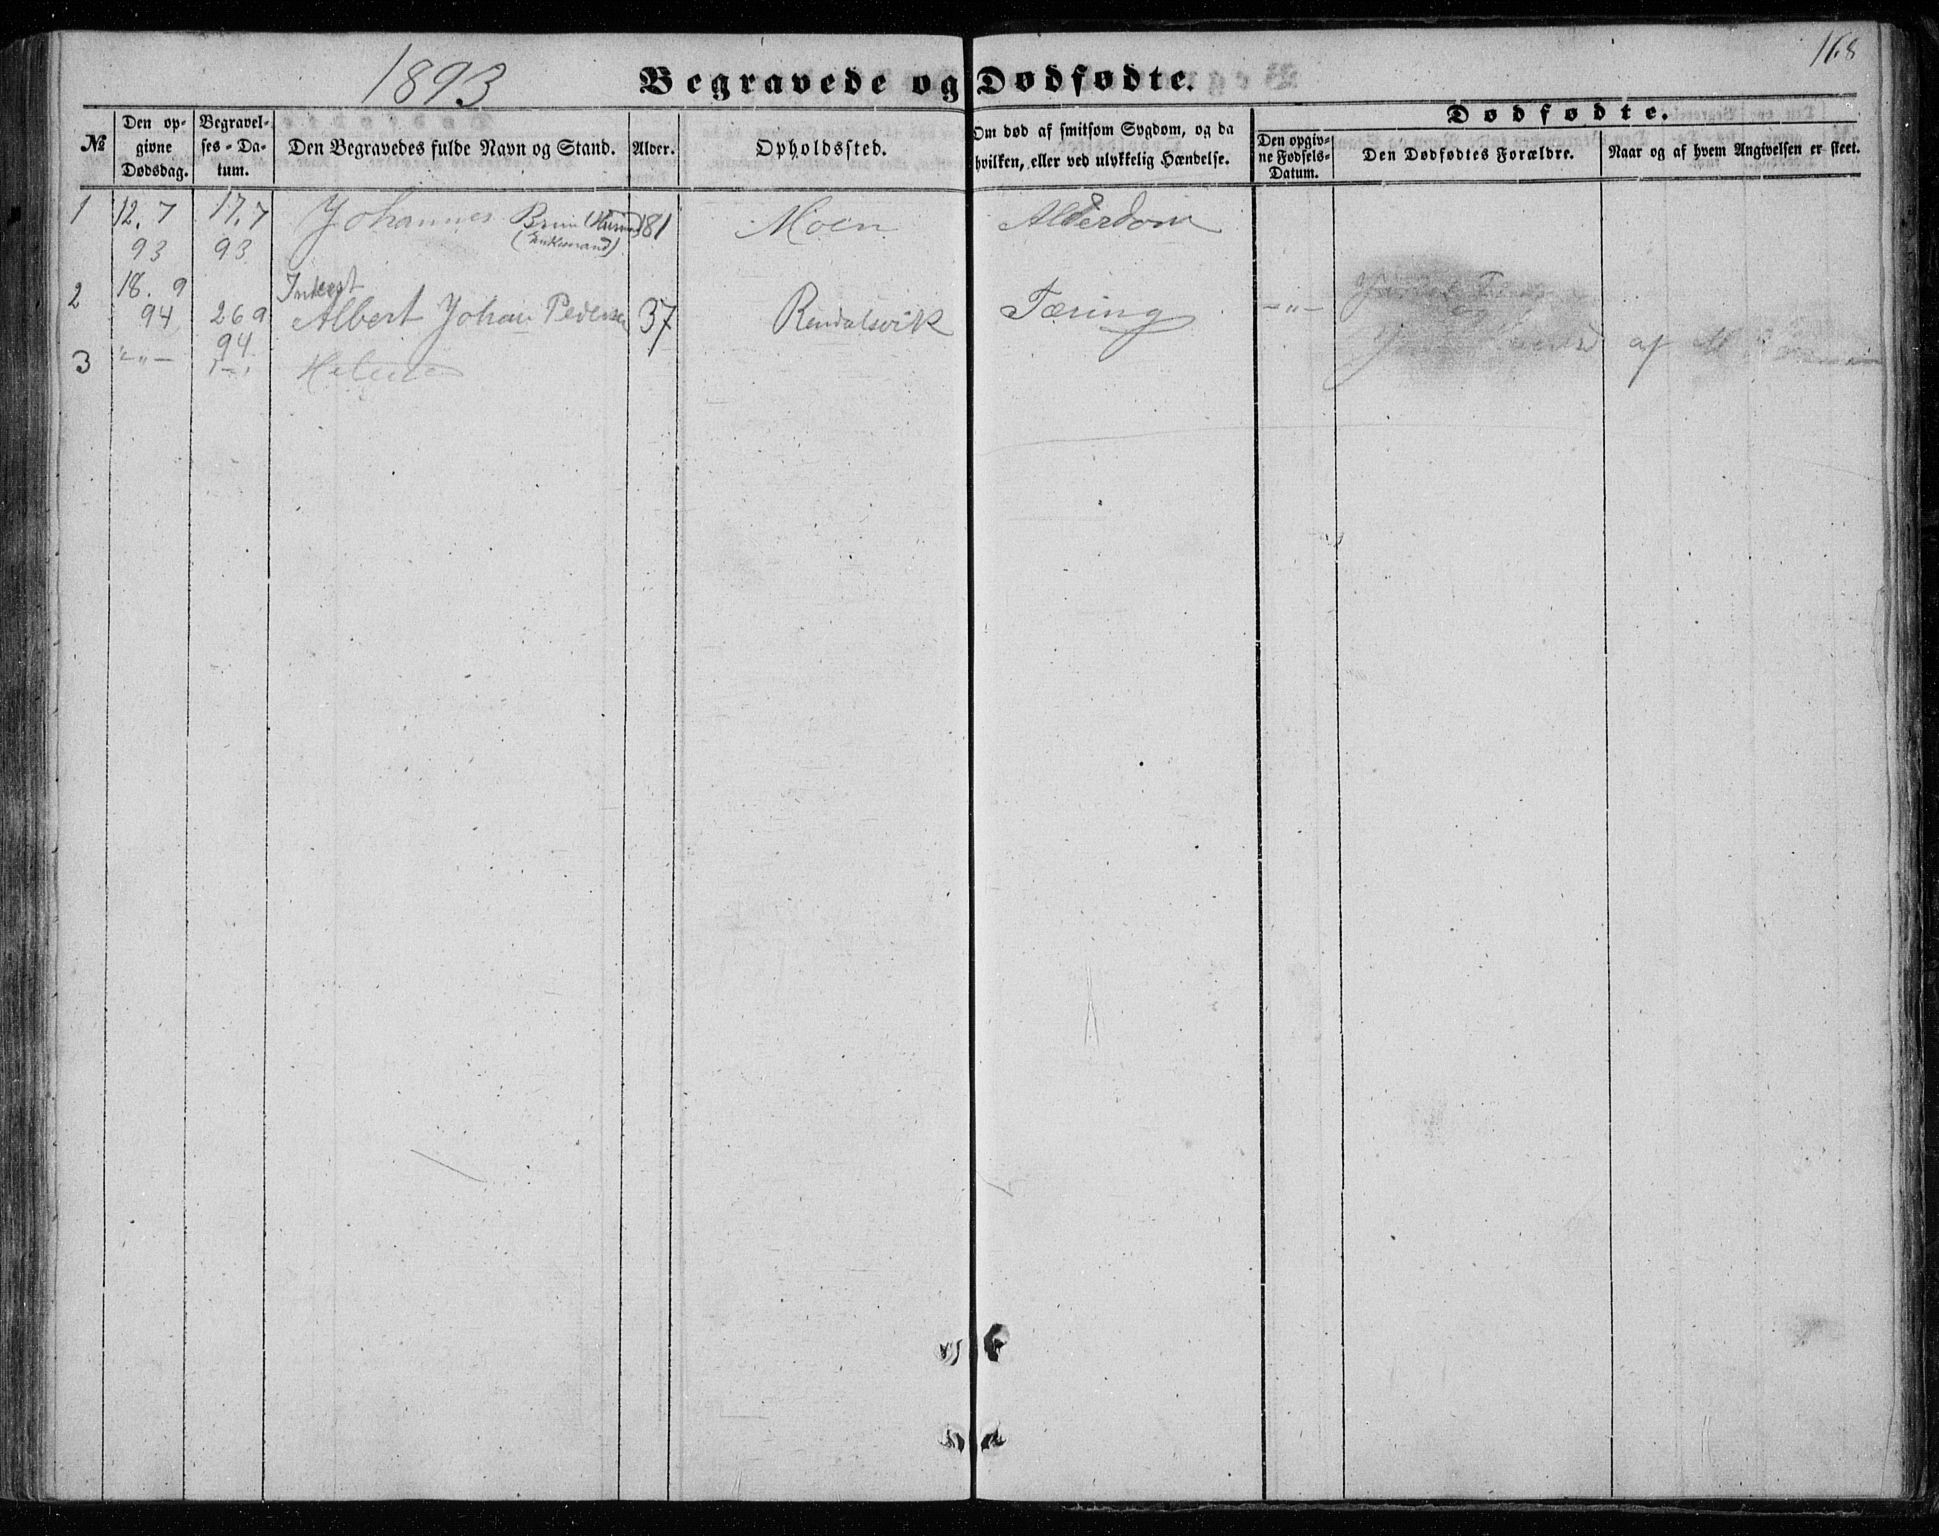 1893
168
Begravede og Dødfødte.
№
Den op-
givne
Dødsdag.
Begravel-
ses-Da-
tum.
Den Begravedes fulde Navn og Stand.
Alder.
Opholdssted.
Om død af smitsom Sygdom, og da
hvilken, eller ved ulykkelig Hændelse.
Dødfødte.
Den opgiv-
ne Fødsels-
Datum.
Den Dødfødtes Forældre.
Naar og af hvem Angivelsen er skeet.
1 12.7 17.7 Johannes 81 Moen Alderdom
93 93 (Enkemand)
2 18.9
94 26 9 Albert Johan Pedersen 37 Rendalsvik Tæring -"-
94
af
3 -"-